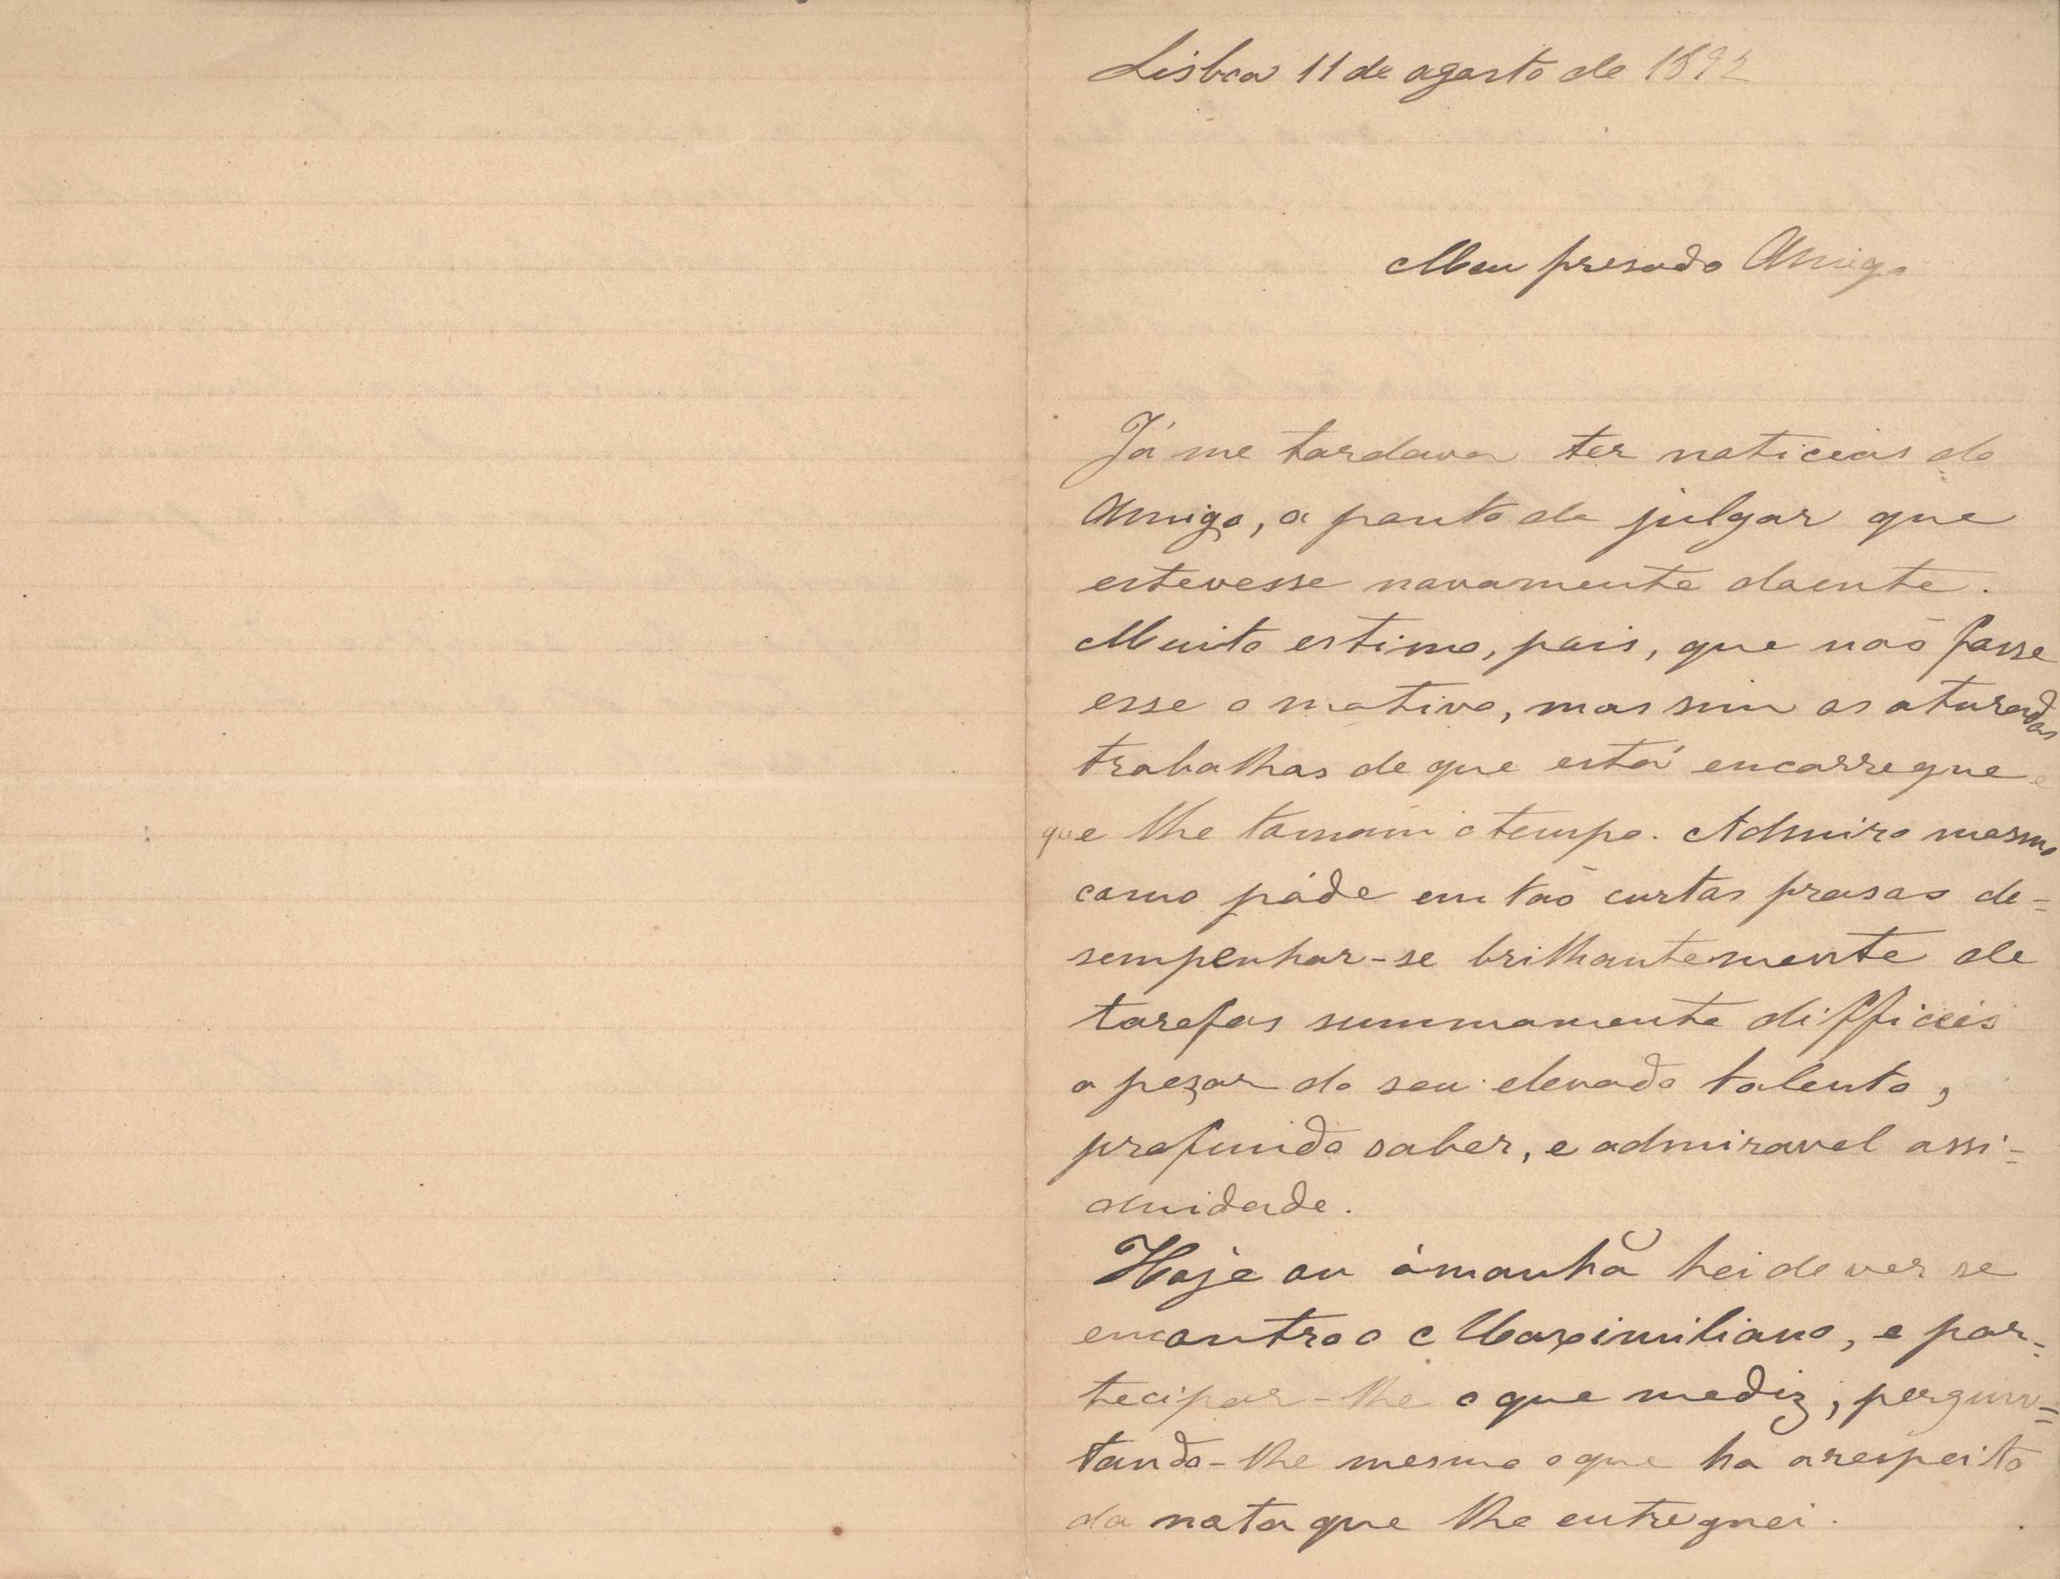 Lisboa 11 de agosto de 1892
Meu presado Amigo
Já me tardava ter noticias do
Amigo, a ponto de julgar que
estevesse novamente doente.
Muito estimo, pois, que não fosse
esse o motivo, mas sim os aturados
trabalhos de que está encarregue e
que lhe tomam o tempo. Admiro mesmo
como póde em tão curtos prasos de=
sempenhar-se brilhantemente de
tarefas summamente difficeis
a pezar do seu elevado talento,
profundo saber, e admiravel assi=
duidade.
Hoje ou ámanhã hei de ver se
encontro o Maximiliano, e par=
tecipar-lhe o que me diz, pergun=
tando-lhe mesmo o que ha a respeito
da nota que lhe entreguei.